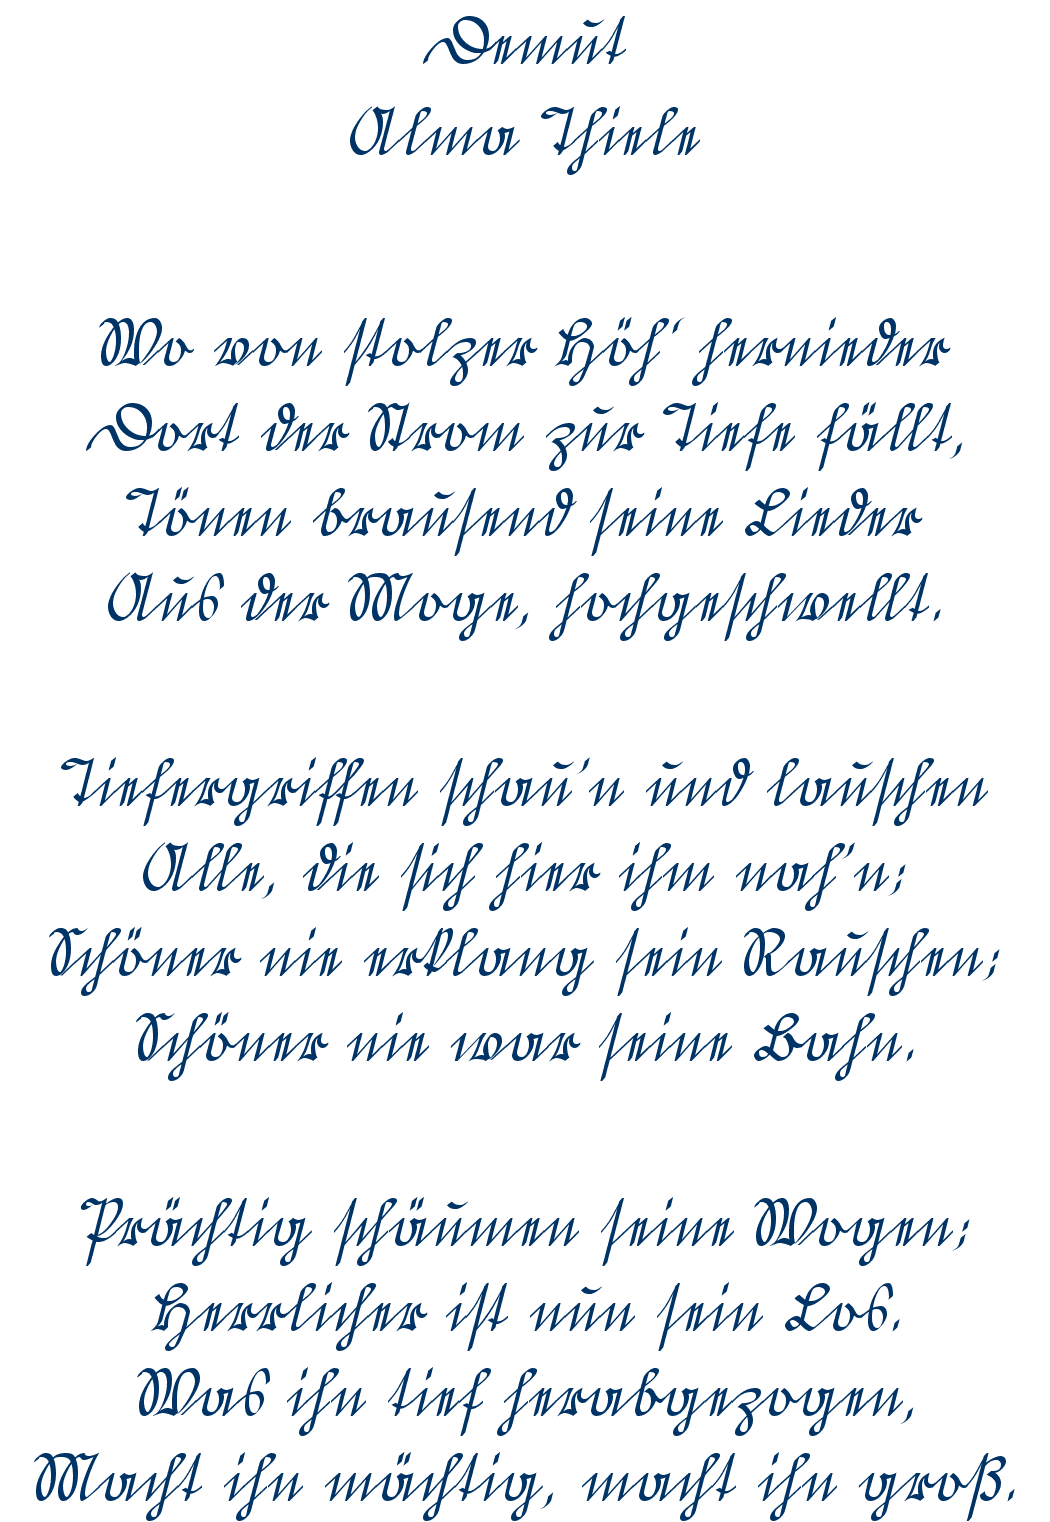 Demut
Alma Thiele
Wo von stolzer Höh' hernieder
Dort der Strom zur Tiefe fällt,
Tönen brausend seine Lieder
Aus der Moge, hochgeschwellt.
Tiefergriffen schau'n und lauschen
Alle, die sich hier ihm nah'n;
Schöner nie erklang sein Rauschen;
Schöner nie war seine Bahn.
Prächtig schäumen seine Wogen;
Herrlicher ist nun sein Los.
Was ihn tief herabgezogen,
Macht ihn mächtig, macht ihn groß.